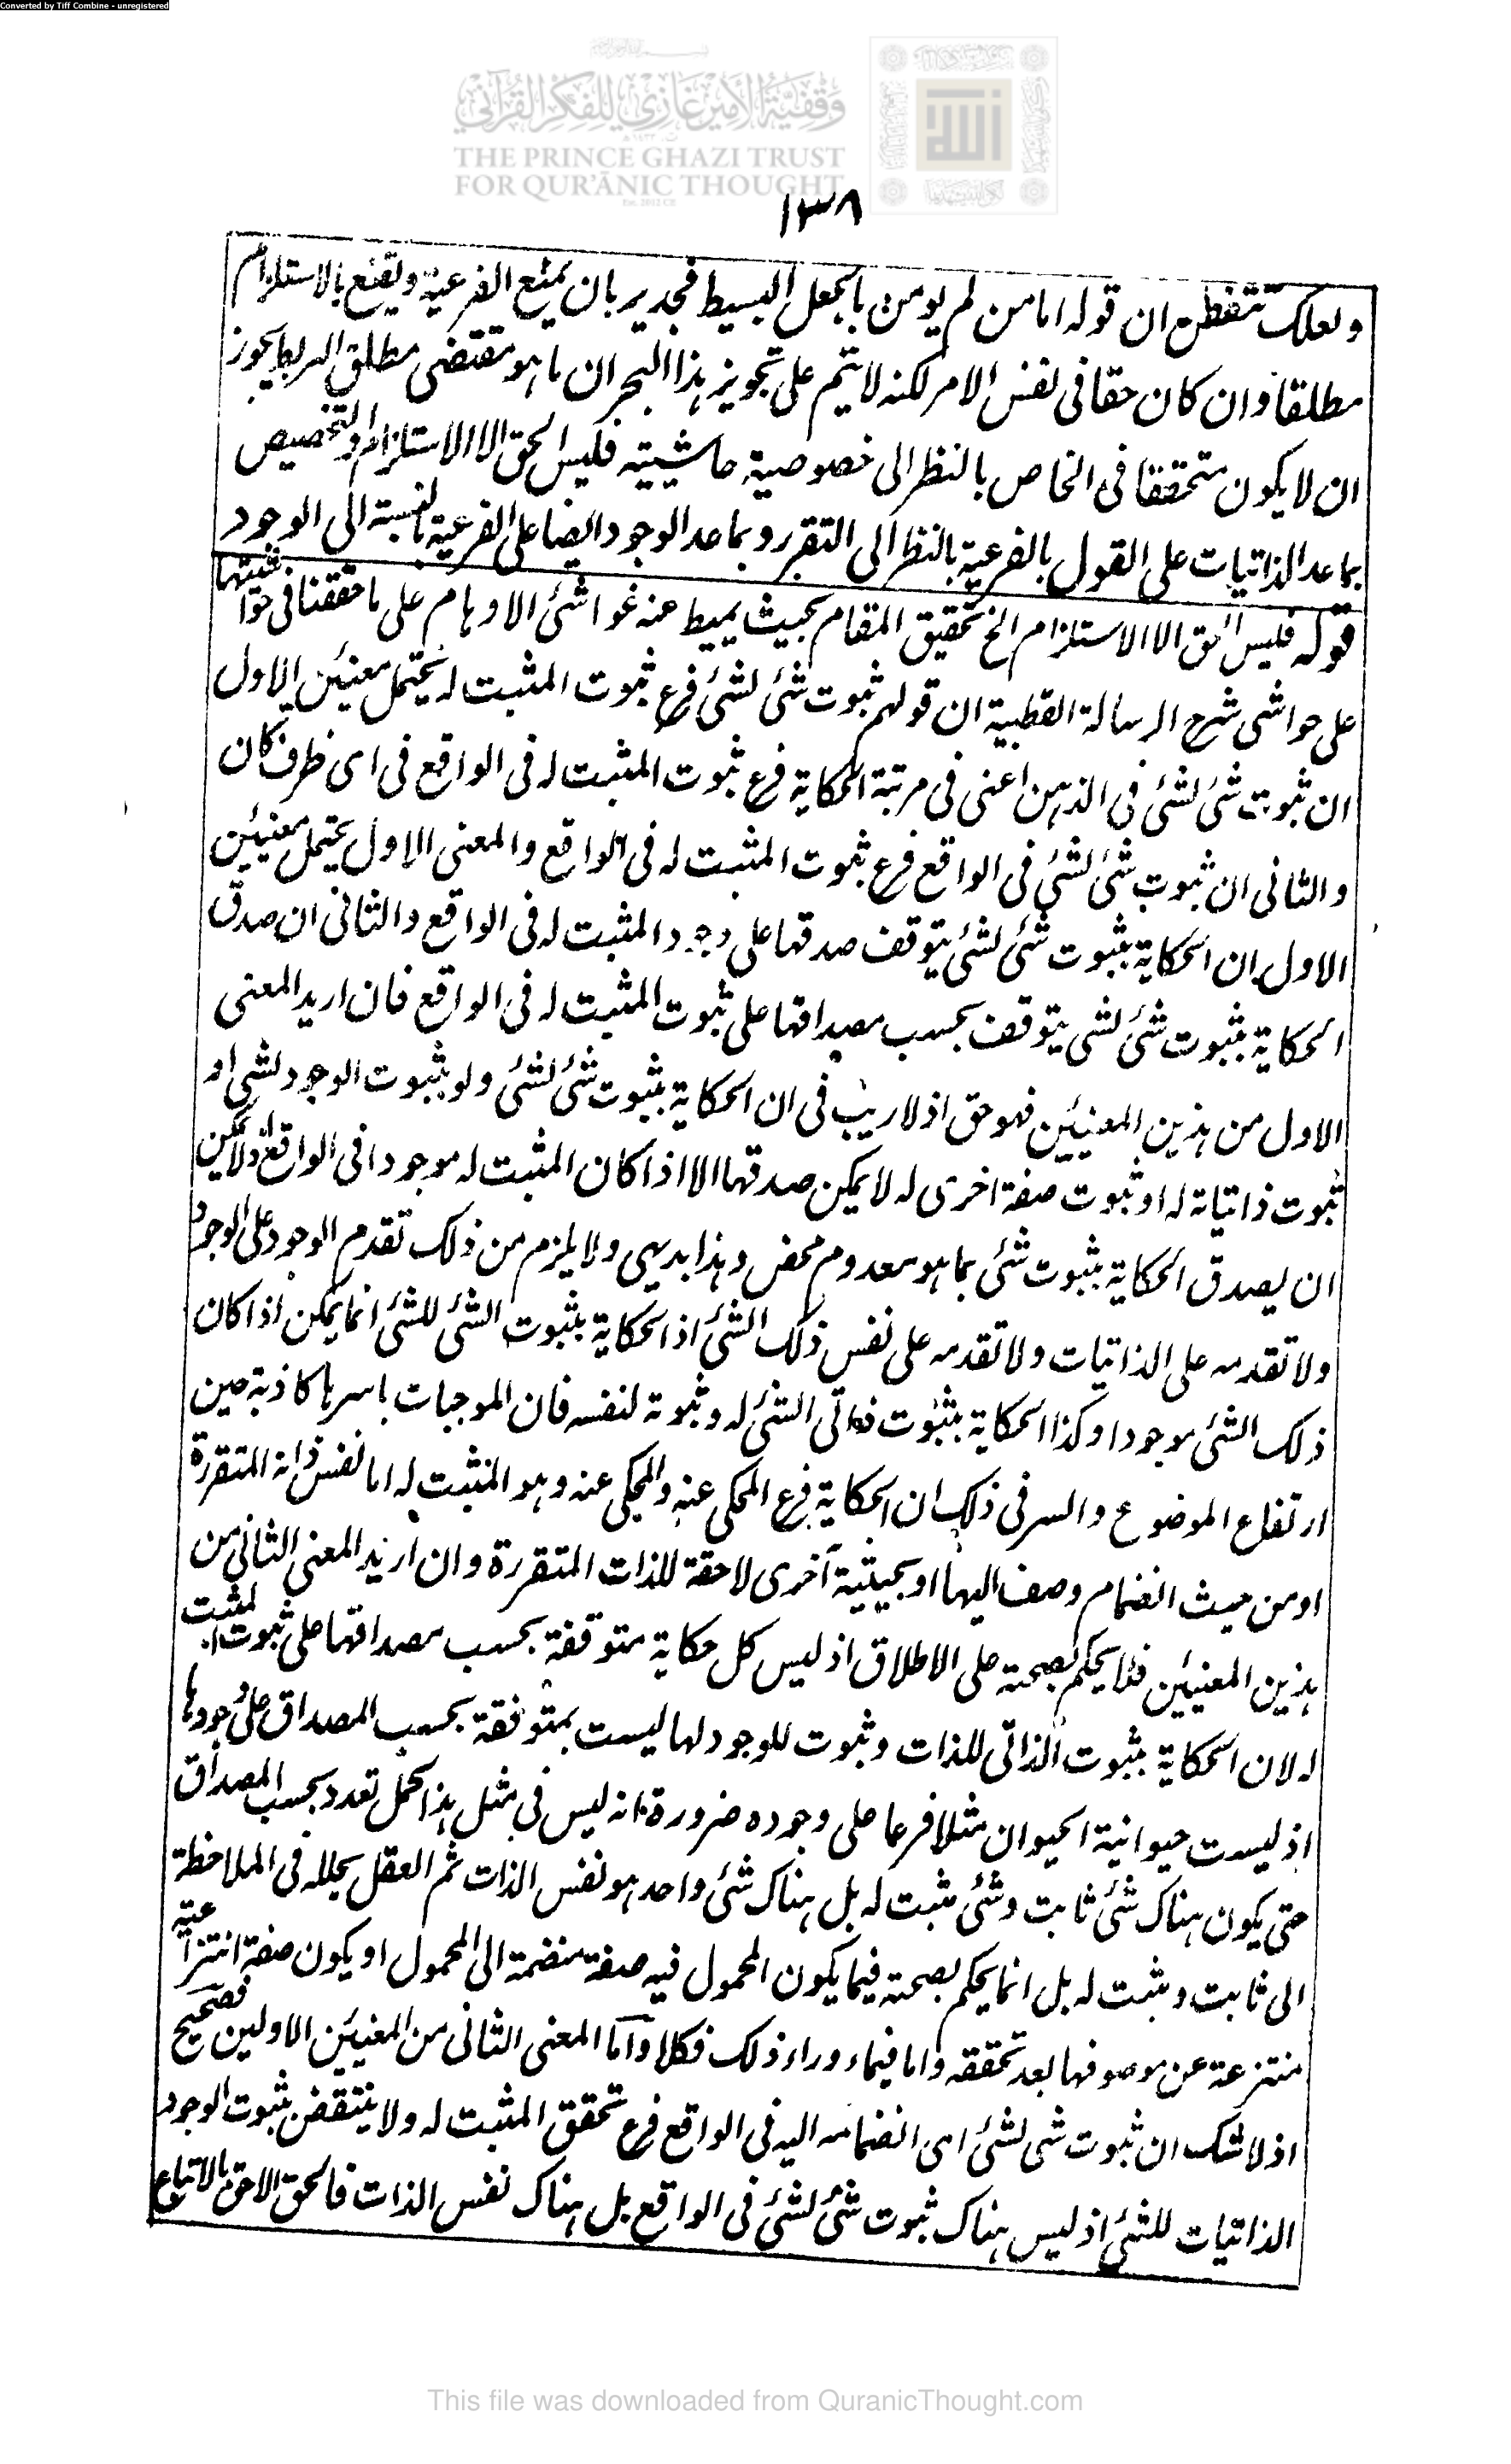 Converted by Tiff Combine - unregistered
وقفية الأمير غازي للفكر القرآني
THE PRINCE GHAZI TRUST
FOR QUR'ĀNIC THOUGHT
Est. 2012 CE
۱۳۸
ولعلك تتفطن ان قوله اما من لم يومن بالجعل البسيط فجدير بان يمنع الفرعية ويقنع بالاستلزام
مطلقا وان كان حقا فى نفس الامر لكنه لا يتم على تجويز هذا البحر ان ما هو مقتضى مطلق الربط يجوز
ان لا يكون متحققا فى الخاص بالنظر الى خصوصية حاشيتيه فليس الحق الا الاستلزام او التخصيص
بما عدا الذاتيات على القول بالفرعية بالنظر الى التقرر وبما عدا الوجود ايضا على الفرعية بالنسبة الى الوجود
قوله فليس الحق الا الاستلزام الخ تحقيق المقام بحيث يميط عنه غواشى الاوهام على ما حققنا فى حواشيها
على حواشى شرح الرسالة القطبية ان قولهم ثبوت شئ لشئ فرع ثبوت المثبت له يحتمل معنيين الاول
ان ثبوت شئ لشئ فى الذهن اعنى فى مرتبة الحكاية فرع ثبوت المثبت له فى الواقع فى اى ظرف كان
والثانى ان ثبوت شئ لشئ فى الواقع فرع ثبوت المثبت له فى الواقع والمعنى الاول يحتمل معنيين
الاول ان الحكاية بثبوت شئ لشئ يتوقف صدقها على وجود المثبت له فى الواقع والثانى ان صدق
الحكاية بثبوت شئ لشى يتوقف بحسب مصداقها على ثبوت المثبت له فى الواقع فان اريد المعنى
الاول من هذين المعنيين فهو حق اذ لا ريب فى ان الحكاية بثبوت شئ لشئ ولو بثبوت الوجود لشى او
ثبوت ذاتياته له او ثبوت صفة اخرى له لا يمكن صدقها الا اذا كان المثبت له موجودا فى الواقع اذ لا يمكن
ان يصدق الحكاية بثبوت شئ بما هو معدوم محض وهذا بديهى ولا يلزم من ذلك تقدم الوجود على الوجود
ولا تقدمه على الذاتيات ولا تقدمه على نفس ذلك الشئ اذ الحكاية بثبوت الشئ للشئ انما يمكن اذا كان
ذلك الشئ موجودا وكذا الحكاية بثبوت ذاتى الشئ له وثبوته لنفسه فان الموجبات باسرها كاذبة حين
ارتفاع الموضوع والسر فى ذلك ان الحكاية فرع المحكى عنه والمحكى عنه وهو المثبت له اما نفس ذاته المتقررة
او من حيث انضمام وصف اليها او بحيثية آخرى لاحقة للذات المتقررة وان اريد المعنى الثانى من
هذين المعنيين فلا يحكم بصحته على الاطلاق اذ ليس كل حكاية متوقفة بحسب مصداقها على ثبوت المثبت
له لان الحكاية بثبوت الذاتى للذات وثبوت للوجود لها ليست بمتوقفة بحسب المصداق على وجودها
اذ ليست حيوانية الحيوان مثلا فرعا على وجوده ضرورة انه ليس فى مثل هذا الحمل تعدد بحسب المصداق
حتى يكون هناك شئ ثابت وشئ مثبت له بل هناك شئ واحد هو نفس الذات ثم العقل يحلله فى الملاحظة
الى ثابت ومثبت له بل انما يحكم بصحته فيما يكون المحمول فيه صفة منضمة الى المحمول او يكون صفة انتزاعية
منتزعة عن موصوفها بعد تحققه واما فيما وراء ذلك فكلا وآما المعنى الثانى من المعنيين الاولين فصحيح
اذ لا شك ان ثبوت شى لشئ اى انضمامه اليه فى الواقع فرع تحقق المثبت له ولا ينتقض بثبوت الوجود
الذاتيات للشئ اذ ليس هناك ثبوت شئ لشئ فى الواقع بل هناك نفس الذات فالحق الاحق بالاتباع
This file was downloaded from QuranicThought.com